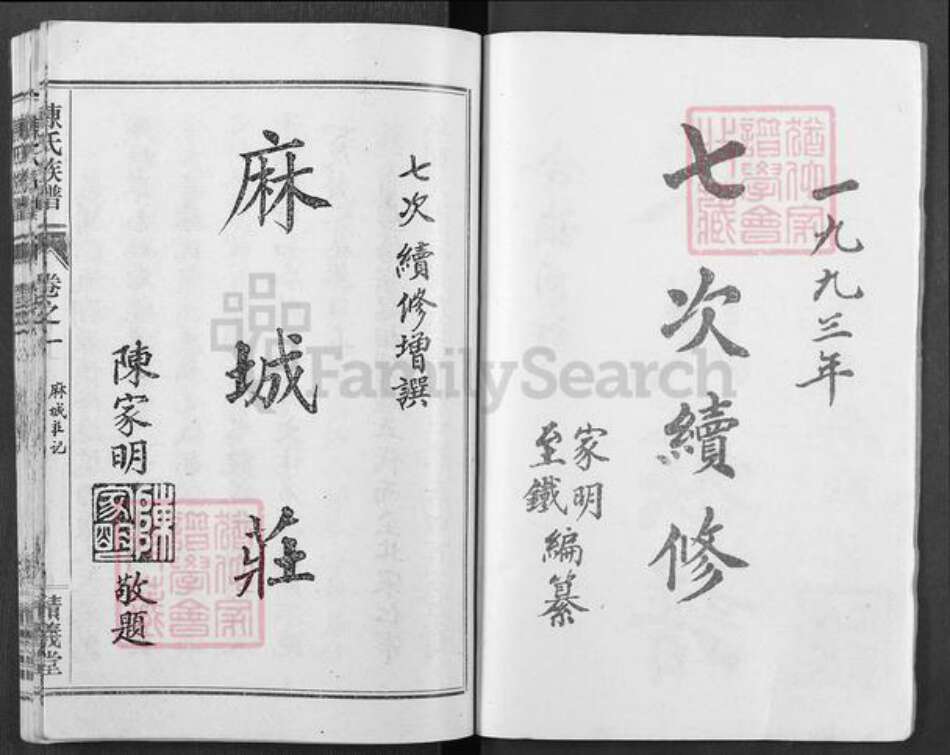 一九九三年
七次續修
家明
至鐵編纂
七次續修增譔
麻城莊
陳家明
陳家明
敬題
陳氏族譜
卷之一
麻城莊记
積義堂
猶他家譜學會
FamilySearch